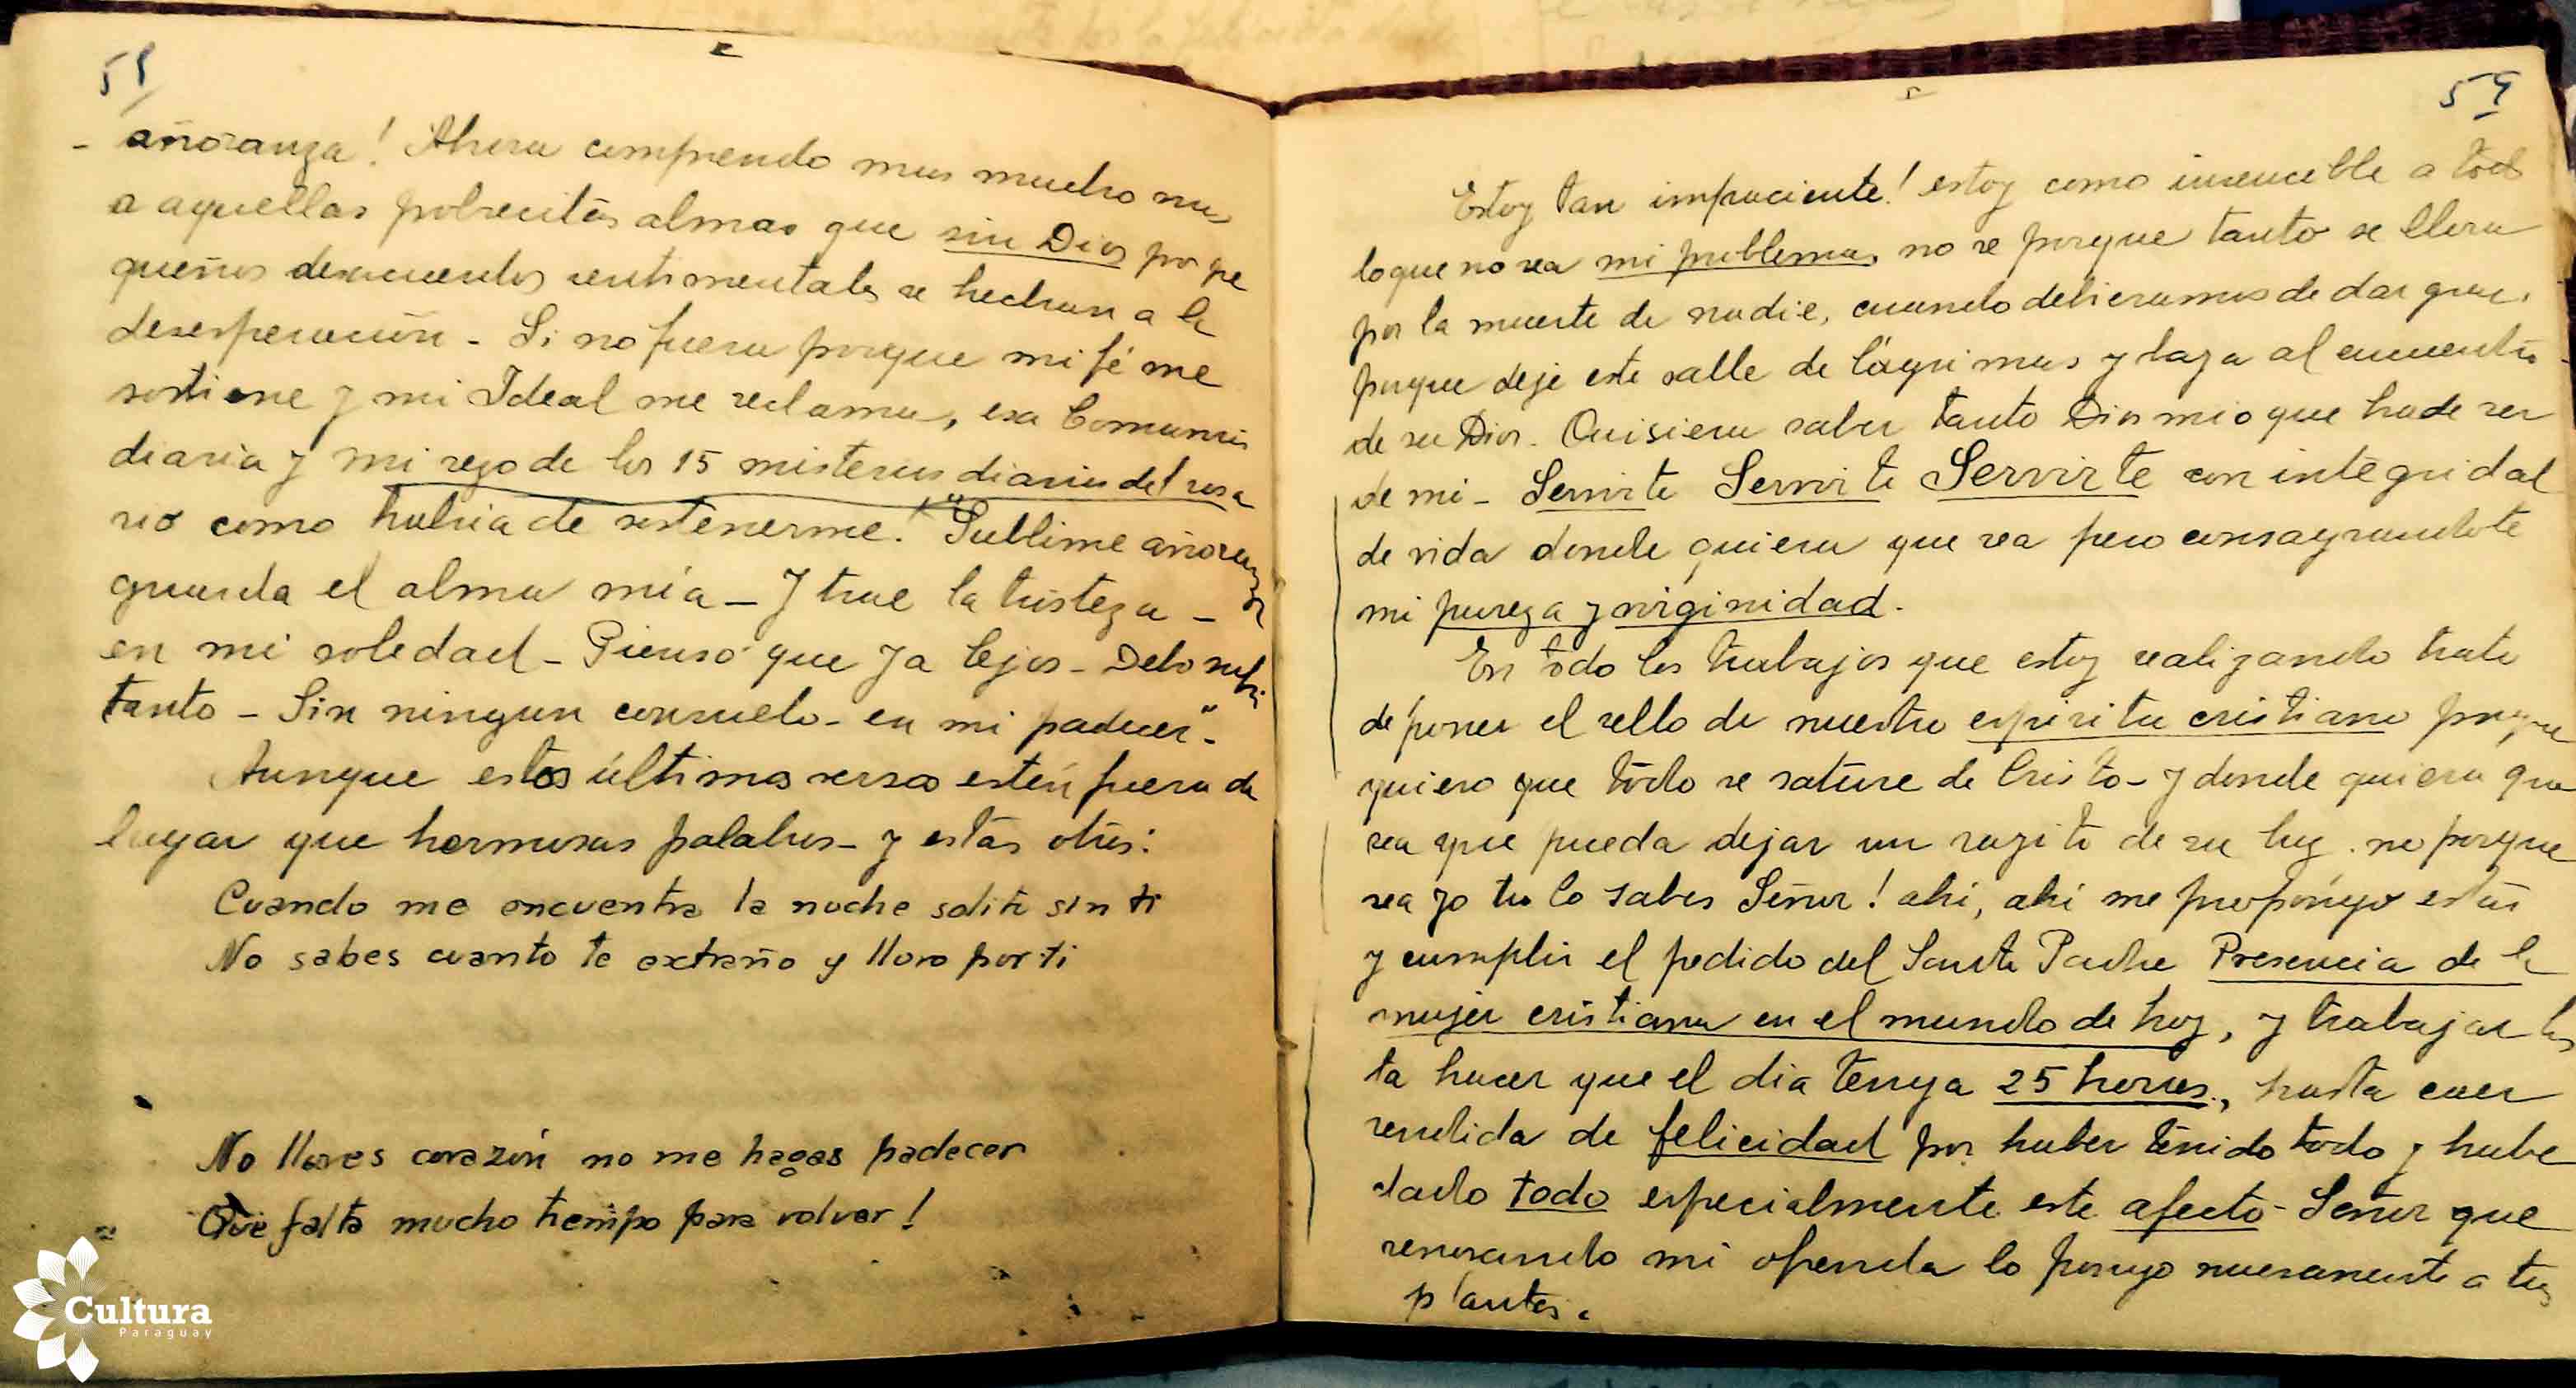 58
añoranza! Ahora comprendo mas mucho mas
a aquellas pobrecitas almas que sin Dios por pe
queños desacuerdos sentimentales se hechan a la
desesperación - Si no fuera porque mi fé me
sostiene y mi Ideal me reclama, esa Comunión
diaria y mi rezo de los 15 misterios diarios del rosa
rio como habia de sostenerme! "Sublime añoranza
guarda el alma mía - Y trae la tristeza -
en mi soledad - Pienso que ya lejos - Debo sufrir
tanto - Sin ningun consuelo - en mi padecer" -
Aunque estos últimos versos estén fuera de
lugar que hermosas palabras - y estas otras:
Cuando me encuentra la noche solita sin ti
No sabes cuanto te extraño y lloro por ti
No llores corazón no me hagas padecer
Que falta mucho tiempo para volver!
59
Estoy tan impaciente! estoy como insencible a todo
lo que no sea mi problema, no se porque tanto se llora
por la muerte de nadie, cuando debieramos de dar grac.
porque deje este valle de lágrimas y vaya al encuentro
de su Dios. Quisiera saber tanto Dios mio que ha de ser
de mi - Servirte Servirte Servirte con integridad
de vida donde quiera que sea pero consagrandote
mi pureza y virginidad.
En todo los trabajos que estoy realizando trato
de poner el sello de nuestro espiritu cristiano porque
quiero que todo se sature de Cristo - y donde quiera que
sea que pueda dejar un rayito de su luz. no porque
sea yo tu lo sabes Señor! ahí, ahí me propongo estar
y cumplir el pedido del Santo Padre Presencia de la
mujer cristiana en el mundo de hoy, y trabajar has
ta hacer que el dia tenga 25 horas., hasta caer
rendida de felicidad por haber tenido todo y haber
dado todo especialmente este afecto - Señor que
renovando mi ofrenda lo pongo nuevamente a tus
plantas.
Cultura
Paraguay